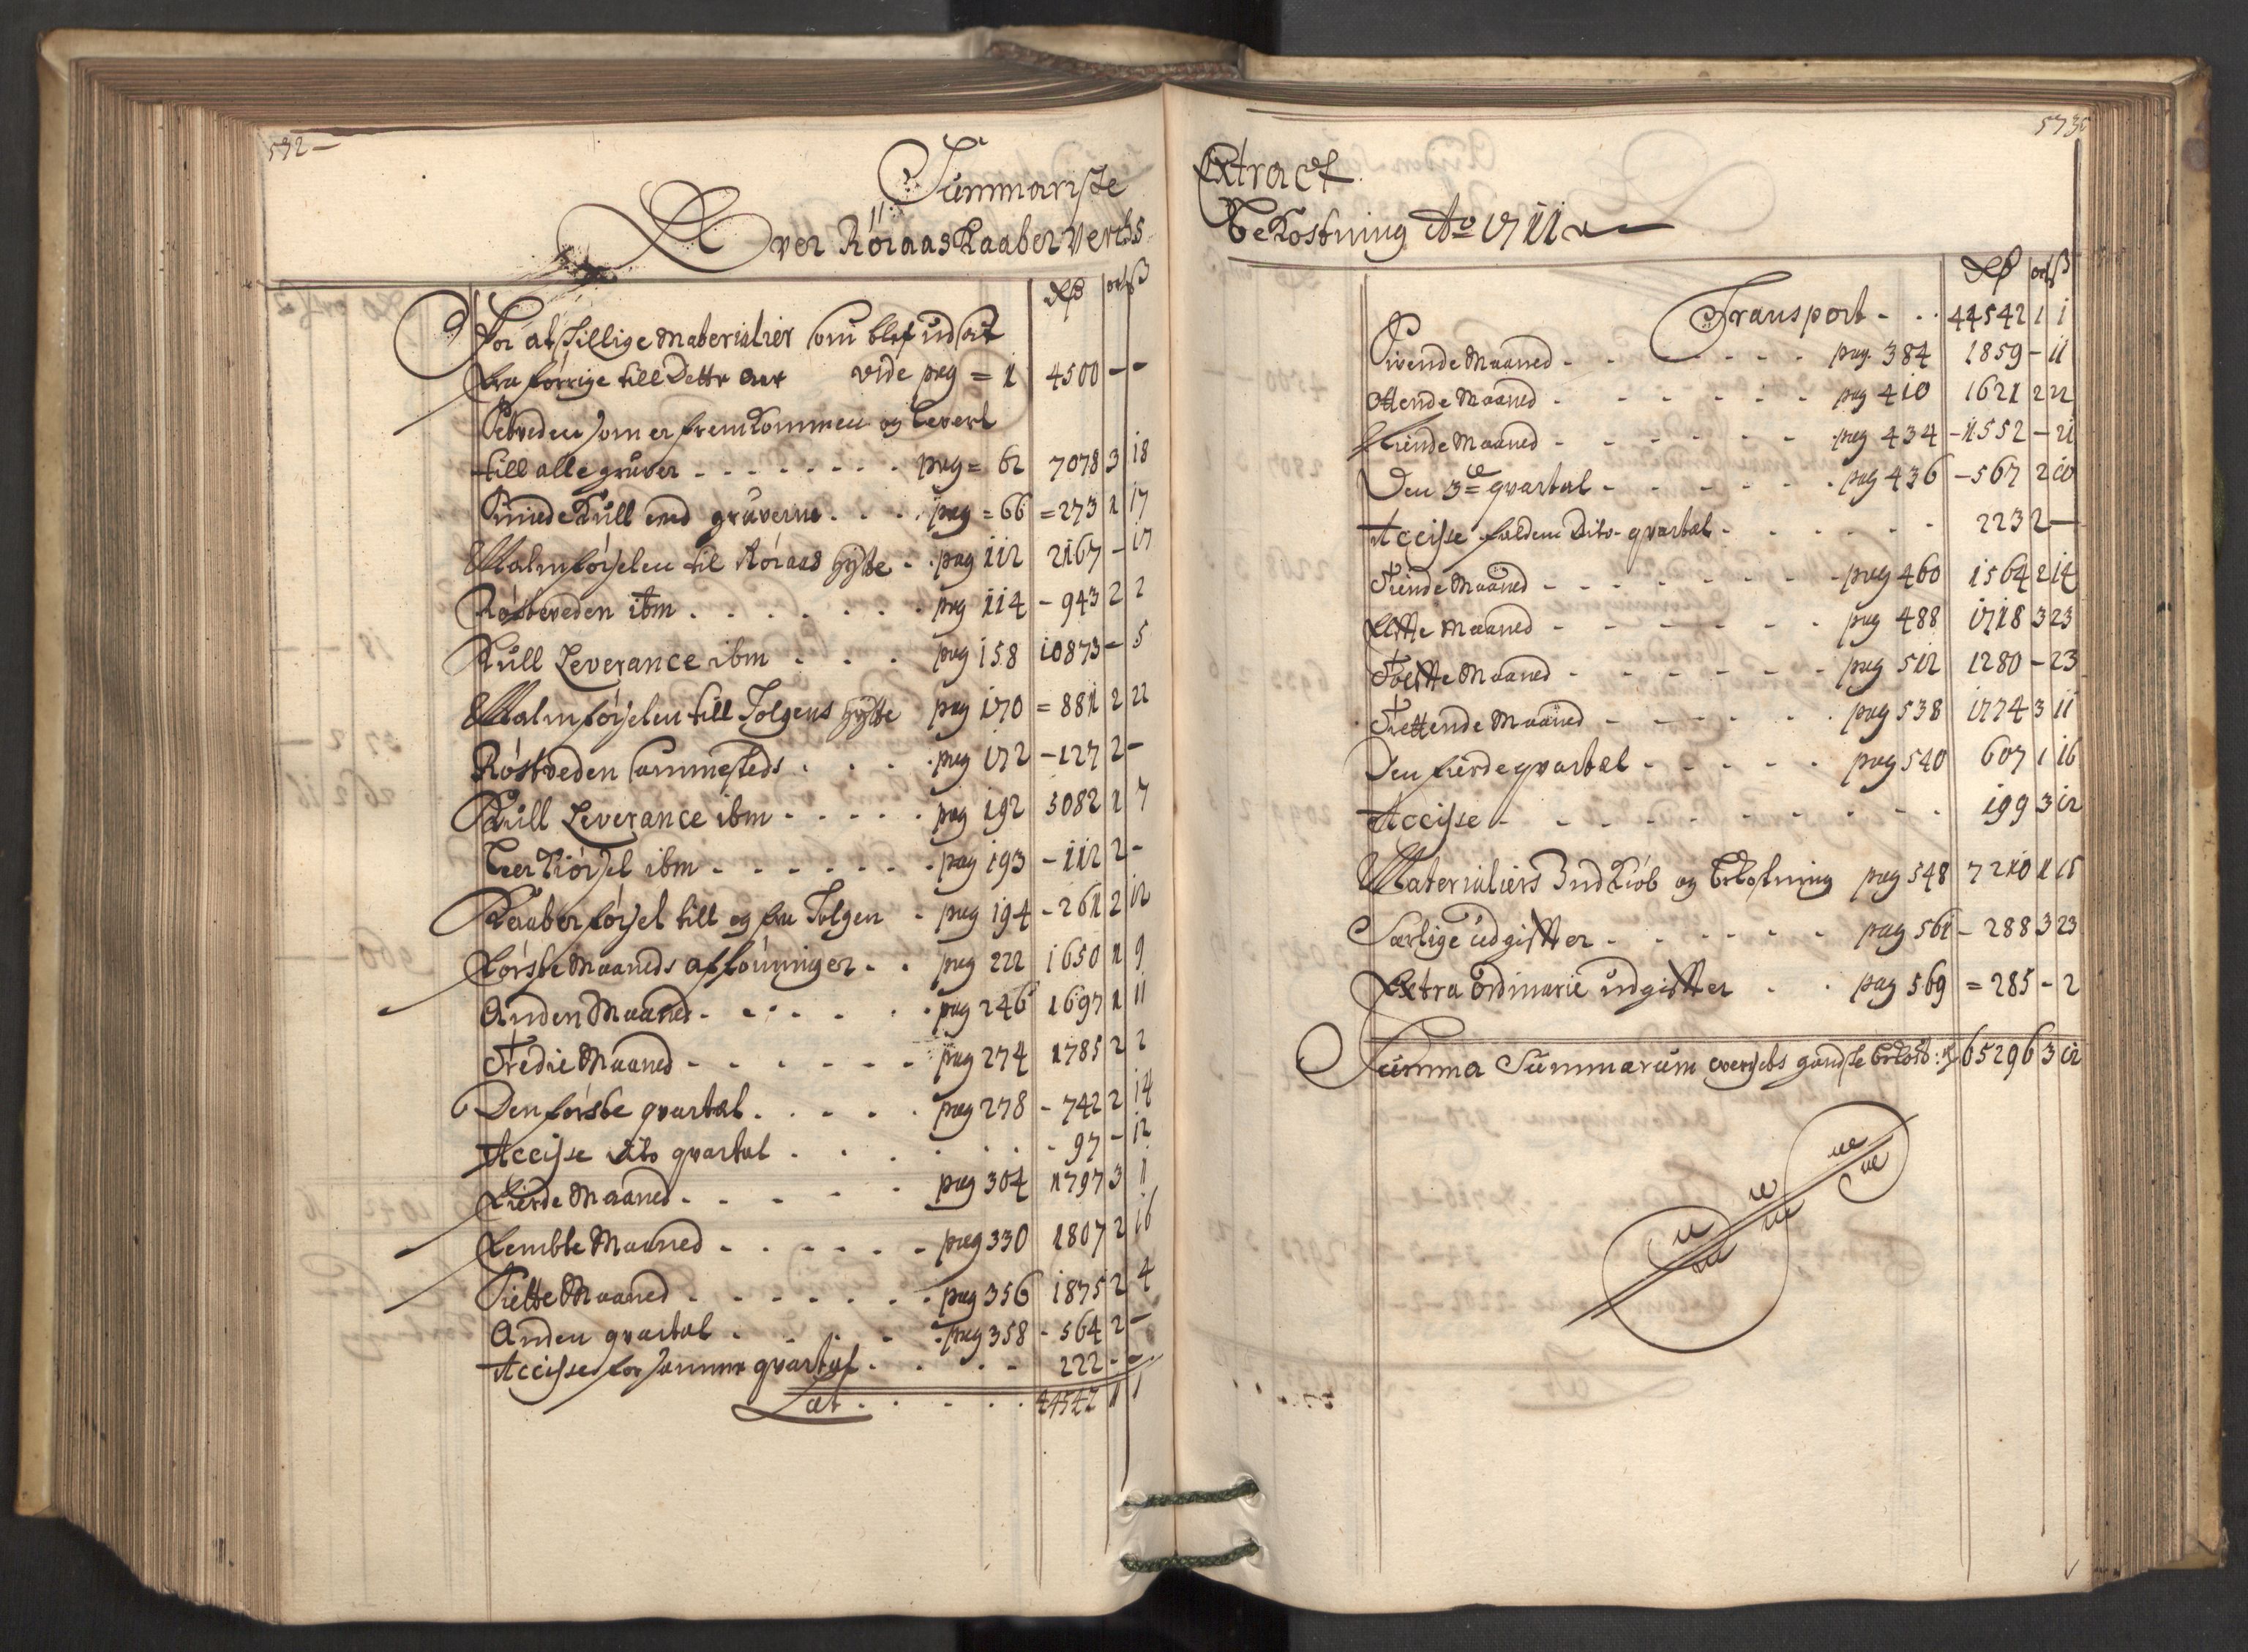 572
Summariske
Over Röraas Kaaber Verchs
Rdr ort ß
For at Tillige Materialier som blef udsat
fra forrige till Dette Aar vide pag = 1 4500 - -
Setveden som er fremkommen og levert
till alle gruver pag = 62 7078 3 18
Smide Kull med gruverne pag = 66 = 273 1 17
Malmförselen til Röraas Hytte pag 112 2167 - 17
Röstveden ibm pag 114 - 943 2 2
Kull Leverance ibm pag 158 10873 - 5
Malmförselen till Tolgens Hytte pag 170 = 881 2 22
Röstveden sammesteds pag 172 - 127 2 -
Kull Leverance ibm pag 192 3082 1 7
Leer Kiörsel ibm pag 193 - 112 2 -
Kaaberförsel till og fra Tolgen pag 194 - 261 2 12
Förste Maaneds aflönninger pag 222 1650 1 9
Anden Maaned pag 246 1697 1 11
Tredie Maaned pag 274 1785 2 2
Den förste qvartal pag 278 - 742 2 14
Accisse dito qvartal 97 - 12
Fierde Maaned pag 304 1797 3 1
Femte Maaned pag 330 1807 2 16
Siette Maaned pag 356 1875 2 4
Anden qvartal pag 358 - 564 2 -
Accisse for samme qvartal 222 - -
Lat 44542 1 1
573
Extract
Bekostning Ao 1711
Rdr ort ß
Transport 44542 1 1
Sivende Maaned pag 384 1859 - 11
Ottende Maaned pag 410 1621 2 22
Niende Maaned pag 434 - 1552 - 21
Den 3de qvartal pag 436 - 567 2 10
Accisse for dito qvartal 223 2 -
Tiende Maaned pag 460 1564 2 14
Elffte Maaned pag 488 1718 3 23
Tolffte Maaned pag 512 1280 - 23
Trettende Maaned pag 538 1774 3 11
Den fierde qvartal pag 540 607 1 16
Accisse 199 3 12
Materialiers Indkiöb og bekostning pag 548 7210 1 18
Særlige udgiffter pag 561 - 288 3 23
Extra ordinarie udgiffter pag 569 = 285 - 2
Summa Summarum verchets gandske bekost: 65296 3 12